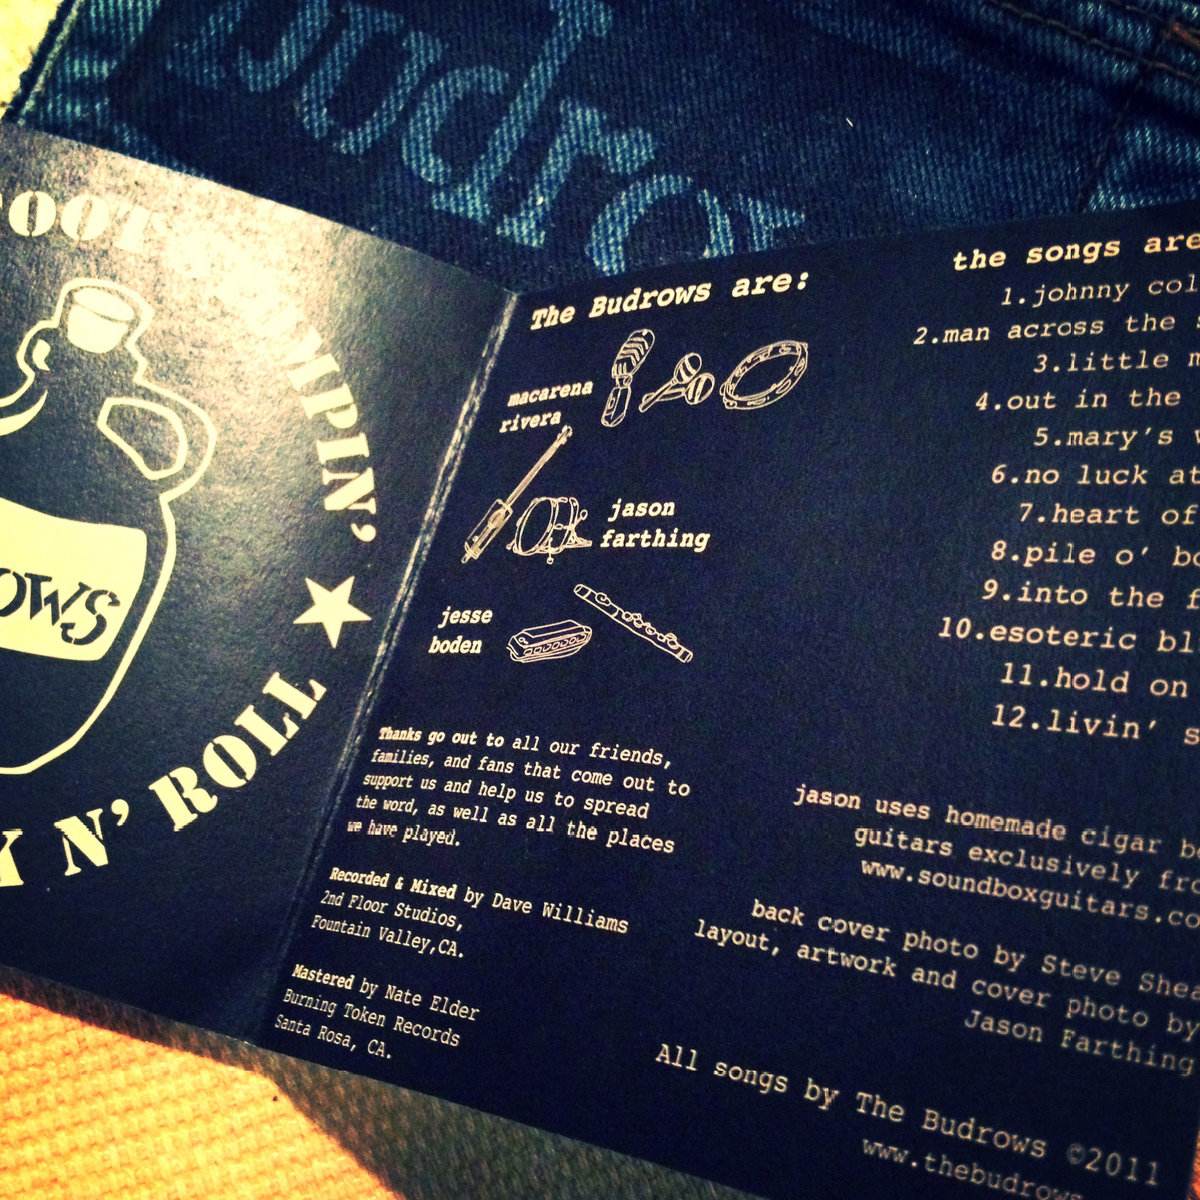 Budrows
OWS
N' ROLL
The Budrows are:
macarena
rivera
jason
farthing
jesse
boden
Thanks go out to all our friends,
families, and fans that come out to
support us and help us to spread
the word, as well as all the places
we have played.
Recorded & Mixed by Dave Williams
2nd Floor Studios,
Fountain Valley,CA.
Mastered by Nate Elder
Burning Token Records
Santa Rosa, CA.
the songs are
1.johnny
2.man across the
3.little
4.out in the
5.mary's
6.no luck at
7.heart of
8.pile o'
9.into the
10.esoteric
11.hold on
12.livin'
jason uses homemade cigar
guitars exclusively
www.soundboxguitars.co
back cover photo by Steve
layout, artwork and cover photo by
Jason Farthing
All songs by The Budrows ©2011
www.thebudrow